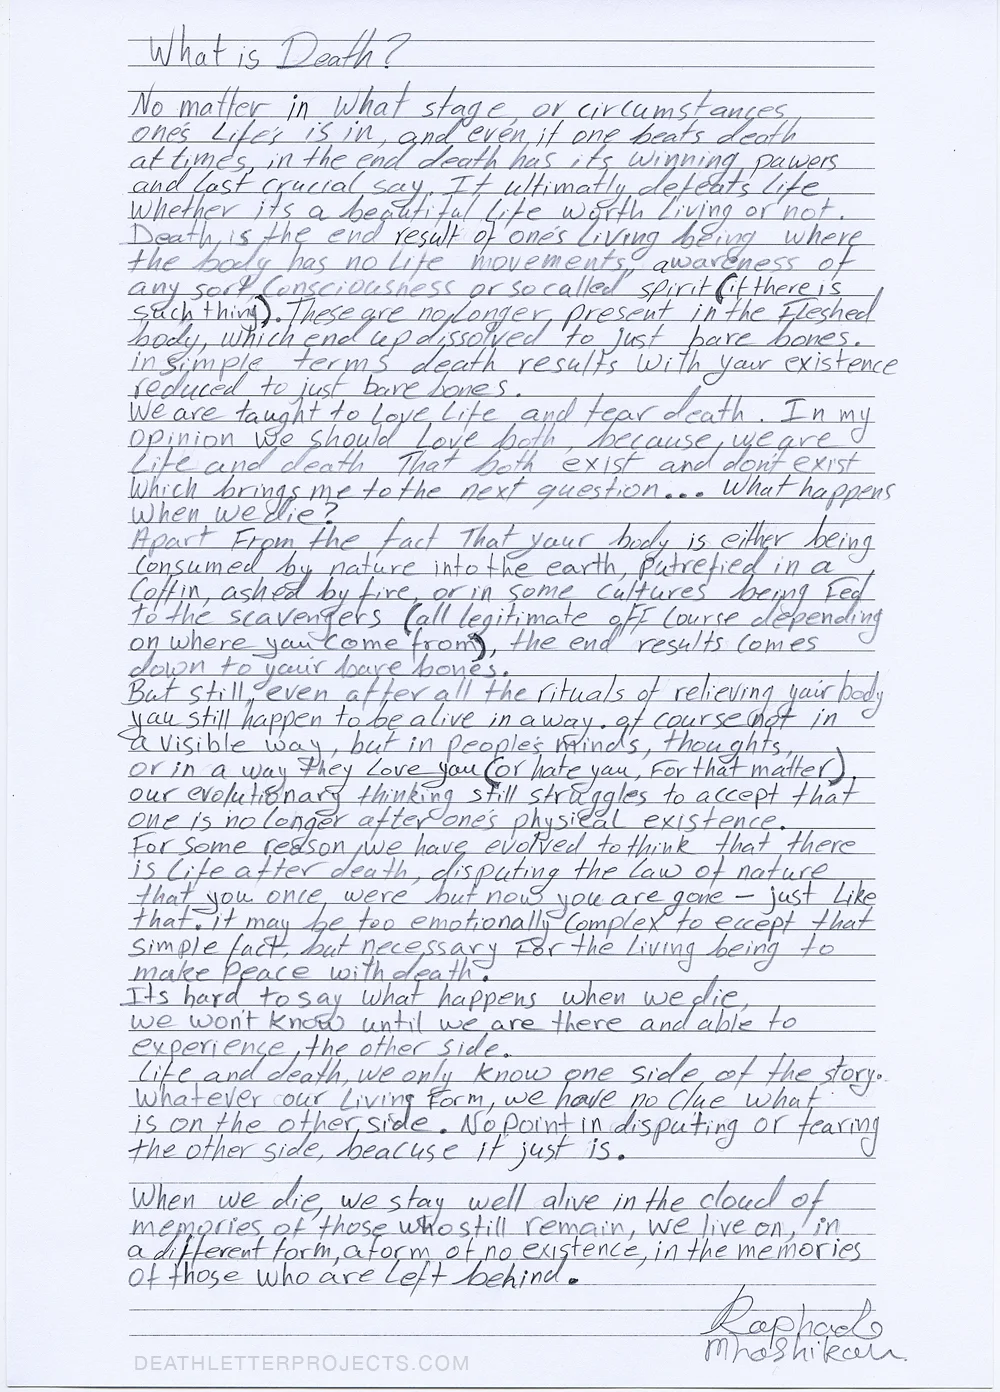 What is Death?
No matter in what stage, or circumstances,
one's Life's is in, and even if one beats death
at times, in the end death has its winning pawers
and last crucial say. It ultimatly defeats Life
whether its a beautiful Life worth Living or not.
Death, is the end result of one's Living being where
the body has no Life movements, awareness of
any sort Consciousness or so called spirit (if there is
such thing). These are no longer present in the Fleshed
body, which end up dissolved to just bare bones.
in simple terms death results with your existence
reduced to just bare bones.
We are taught to Love Life and fear death. In my
opinion we should Love both, because, we are
Life and death That both exist and don't exist
which brings me to the next question... What happens
when we die?
Apart From the fact That your body is either being
Consumed by nature into the earth, putrefied in a
Coffin, ashed by fire, or in some cultures being Fed
to the scavengers (all legitimate off Course depending
on where you Come from), the end results Comes
down to your bare bones.
But still, even after all the rituals of relieving your body
you still happen to be alive in a way. of course not in
a visible way, but in people's minds, thoughts,
or in a way they Love you (or hate you, For that matter),
our evolutionary thinking still struggles to accept that
one is no longer after one's physical existence.
For some reason we have evolved to think that there
is Life after death, disputing the Law of nature
that you once were but now you are gone – just Like
that. it may be too emotionally Complex to eccept that
simple fact, but necessary For the Living being to
make Peace with death.
Its hard to say what happens when we die,
we won't know until we are there and able to
experience, the other side.
Life and death, we only know one side of the story.
Whatever our Living Form, we have no Clue what
is on the other side. No Point in disputing or fearing
the other side, beacuse it just is.
When we die, we stay well alive in the cloud of
memories of those who still remain, we live on, in
a different form, a form of no existence, in the memories
of those who are Left behind.
Raphael
DEATHLETTERPROJECTS.COM